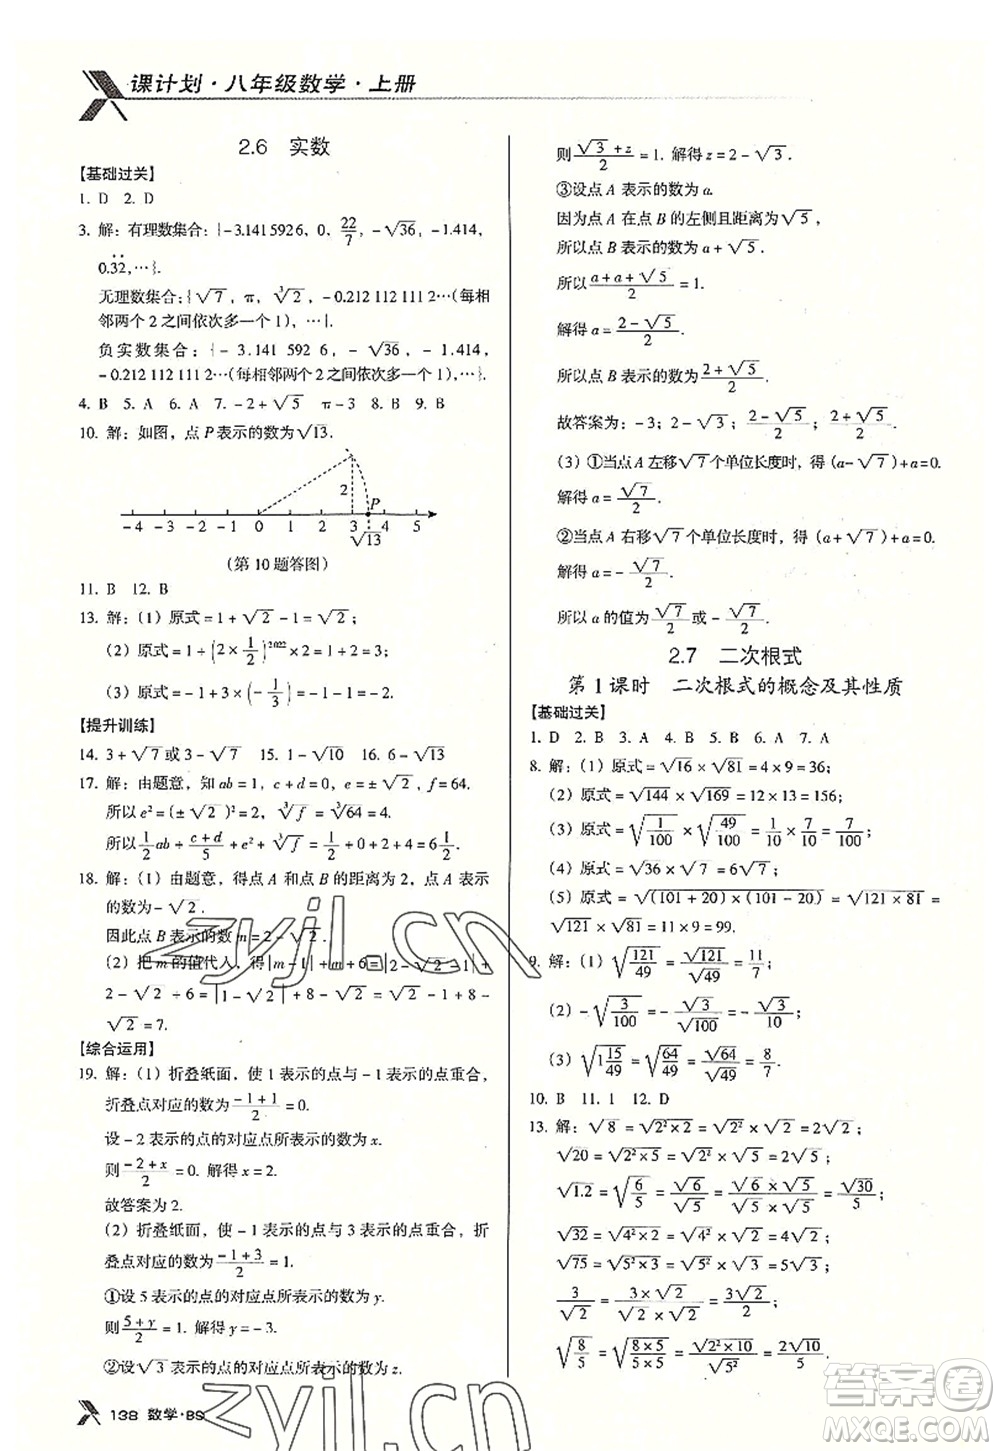 课计划·八年级数学·上册
2.6 实数
【基础过关】
1. D 2. D
3. 解：有理数集合：{-3.141 592 6，0，22/7，-√36，-1.414，
0.3̇2̇，…}.
无理数集合：{√7，π，∛2，-0.212 112 111 2…(每相
邻两个 2 之间依次多一个 1)，…}.
负实数集合：{-3.141 592 6，-√36，-1.414，
-0.212 112 111 2…(每相邻两个 2 之间依次多一个 1)，…}.
4. B 5. A 6. A 7. -2+√5 π-3 8. B 9. B
10. 解：如图，点 P 表示的数为√13.
2 P
-4 -3 -2 -1 0 1 2 3 4 5
√13
(第 10 题答图)
11. B 12. B
13. 解：(1) 原式=1+√2-1=√2；
(2) 原式=1÷(2×1/2)^2022×3=3；
(3) 原式=1-1+3×(-1/3)=-1.
【提升训练】
14. 3+√7或3-√7 15. 1-√2 16. 6-√13
17. 解：由题意，知 ab=1，c+d=0，e=±√2，f=64.
所以 e²=(±√2)²=2，∛f=∛64=4.
所以 1/2 ab+(c+d)/5+e²+∛f=1/2+0+2+4=6 1/2.
18. 解：(1) 由题意，得点 A 和点 B 的距离为 2，点 A 表示
的数为-√2.
因此点 B 表示的数 m=2-√2.
(2) 把 m 的值代入，得|m-1|+|m+√2|+
2-√2÷6=|1-√2|+|2-√2+√2|+
√2=7.
【综合运用】
19. 解：(1) 折叠纸面，使 1 表示的点与-1 表示的点重合，
折叠点对应的数为(-1+1)/2=0.
设-2 表示的点的对应点所表示的数为 x.
则(-2+x)/2=0. 解得 x=2.
故答案为 2.
(2) 折叠纸面，使-1 表示的点与 3 表示的点重合，折
叠点对应的数为(-1+3)/2=1.
①设 5 表示的点的对应点所表示的数为 y.
则(5+y)/2=1. 解得 y=-3.
②设√3表示的点的对应点所表示的数为 z.
则(√3+z)/2=1. 解得 z=2-√3.
③设点 A 表示的数为 a.
因为点 A 在点 B 的左侧且距离为√5，
所以点 B 表示的数为 a+√5.
所以(a+a+√5)/2=1.
解得 a=(2-√5)/2.
所以点 B 表示的数为(2+√5)/2.
故答案为-3；2-√3；(2-√5)/2；(2+√5)/2.
(3) ①当点 A 左移√7个单位长度时，得 (a-√7)+a=0.
解得 a=√7/2.
②当点 A 右移√7个单位长度时，得 (a+√7)+a=0.
解得 a=-√7/2.
所以 a 的值为√7/2或-√7/2.
2.7 二次根式
第 1 课时 二次根式的概念及其性质
【基础过关】
1. D 2. B 3. A 4. B 5. B 6. A 7. A
8. 解：(1) 原式=√16×√81=4×9=36；
(2) 原式=√144×√169=12×13=156；
(3) 原式=√(1/100)×√(49/100)=1/10×7/10=7/100；
(4) 原式=√36×√7=6√7；
(5) 原式=√((101+20)×(101-20))=√(121×81)=
√121×√81=11×9=99.
9. 解：(1) √(121/49)=√121/√49=11/7；
(2) -√(3/100)=-√3/√100=-√3/10；
(3) √(1 15/49)=√(64/49)=√64/√49=8/7.
10. B 11. 1 12. D
13. 解：√8=√(2²×2)=√2²×√2=2√2；
√20=√(2²×5)=√2²×√5=2√5；
√1.2=√(6/5)=√6/√5=(√6×√5)/(√5×√5)=√30/5；
√32=√(4²×2)=√4²×√2=4√2；
√75=√(5²×3)=√5²×√3=5√3；
3/√2=(3×√2)/(√2×√2)=3√2/2；
√(8/5)=√((8×5)/(5×5))=√(2²×10)/√5²=2√10/5.
138 数学·BS
zyjl.cn
zyjl.cn
答案圈
MXQE.COM